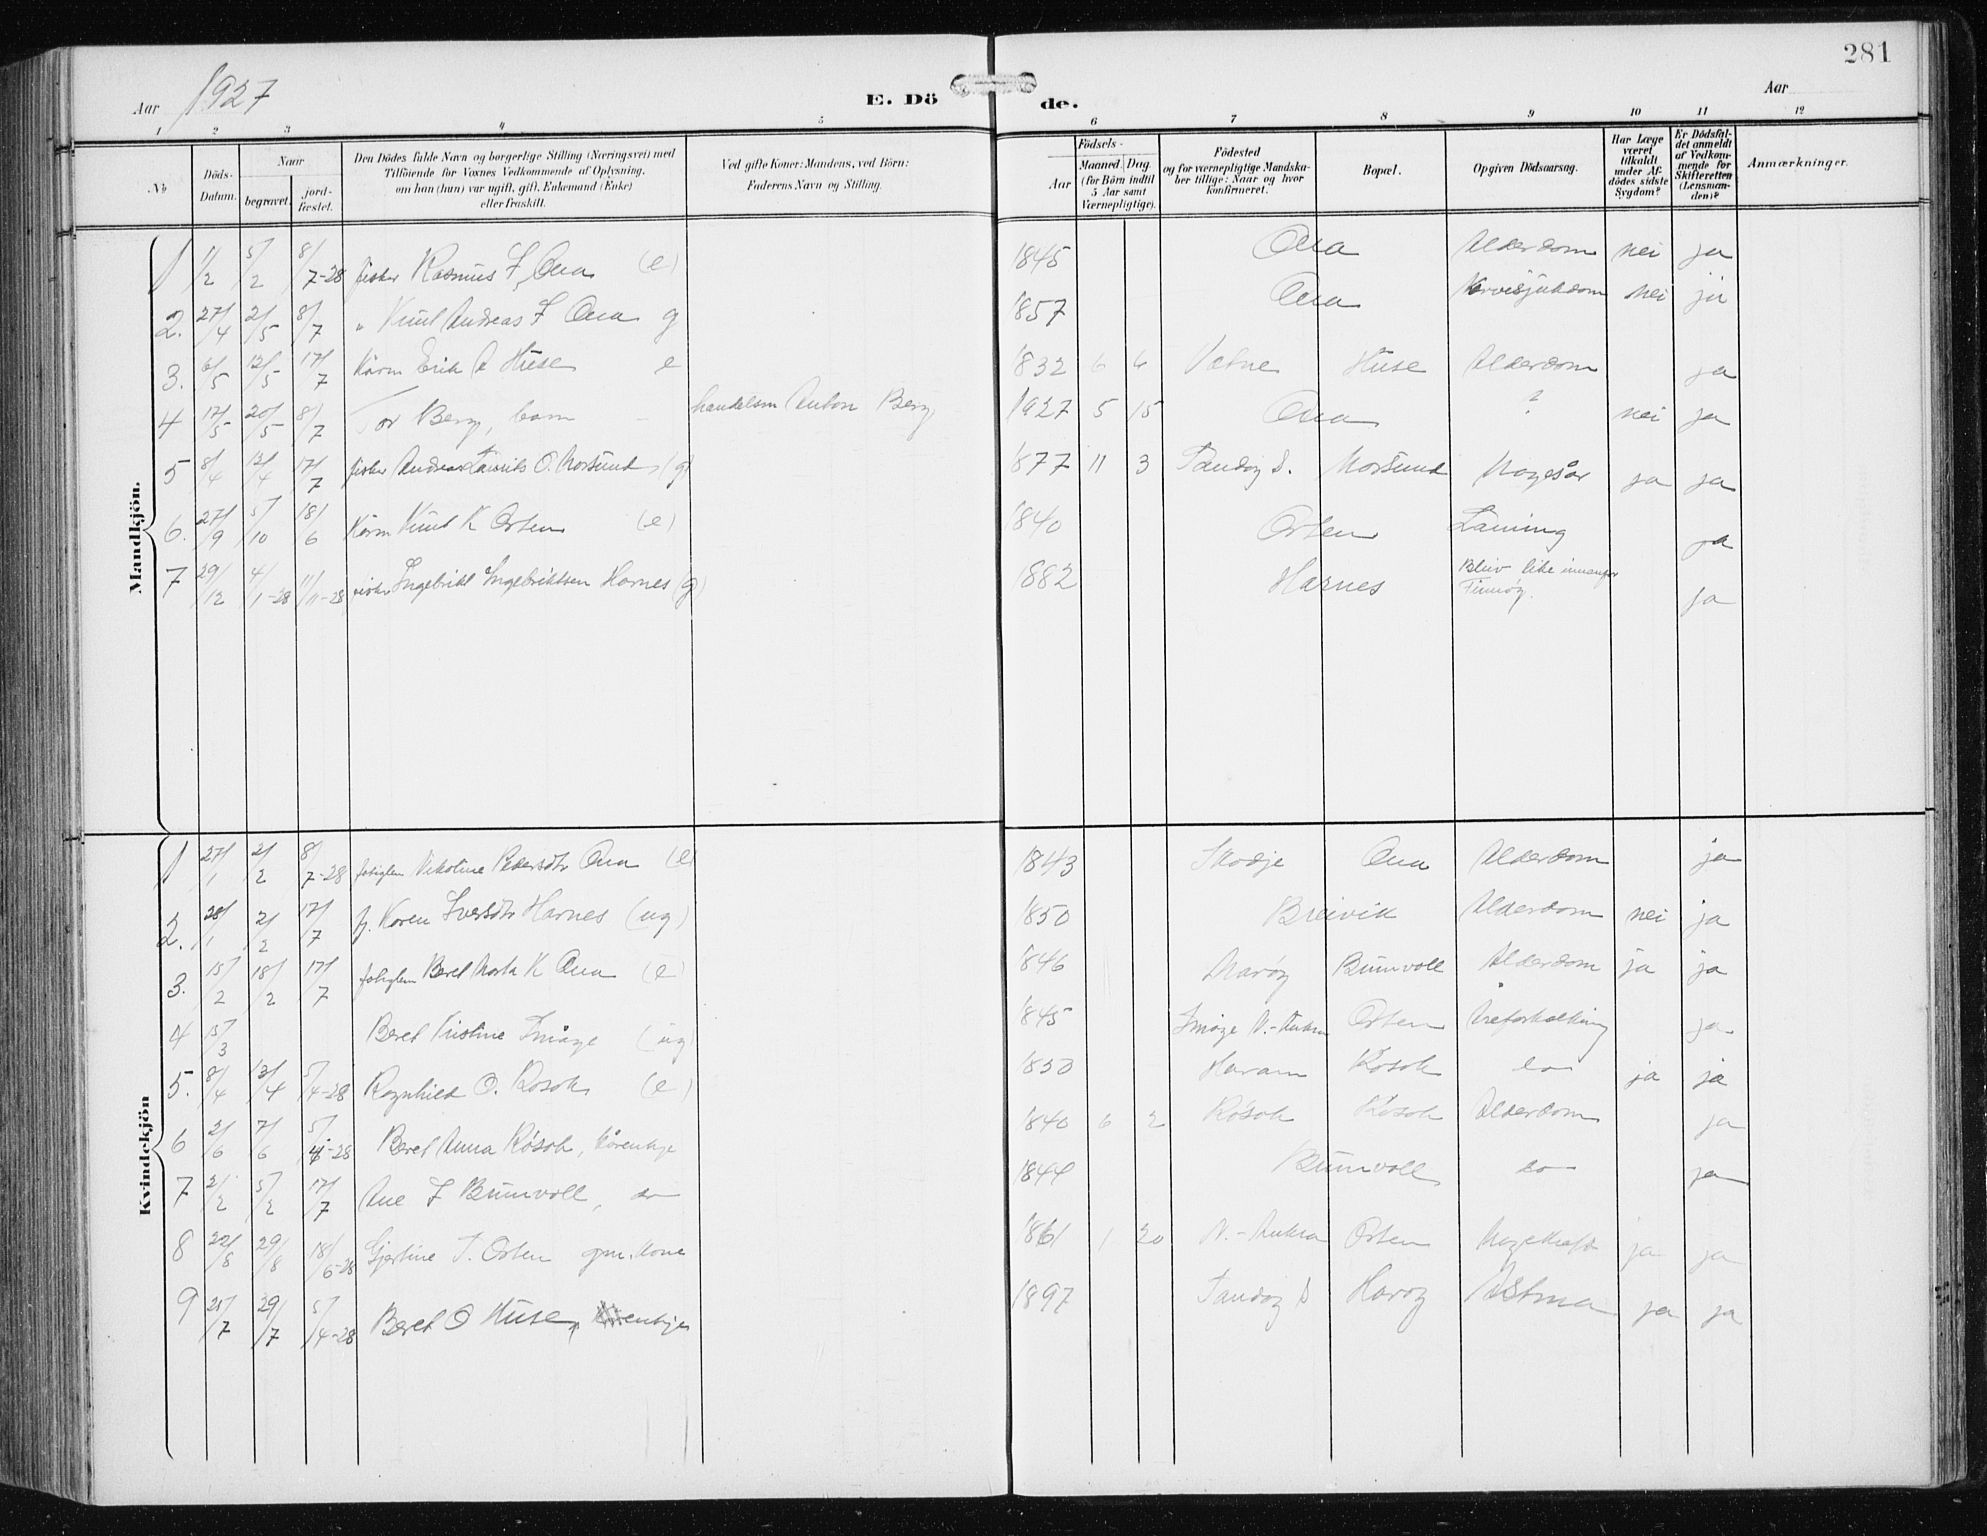 281
Aar 1927
E. Dö
de.
Aar
1 2 3 4 5 6 7 8 9 10 11 12
No.
Döds-Datum.
Naar
begravet.
jord-fæstet.
Den Dödes fulde Navn og borgerlige Stilling (Næringsvei) med
Tilföiende for Voxnes Vedkommende af Oplysning,
om han (hun) var ugift, gift, Enkemand (Enke)
eller fraskilt.
Ved gifte Koner: Mandens, ved Börn:
Faderens Navn og Stilling.
Födsels-
Aar
Maaned. Dag.
(for Börn indtil
5 Aar samt
Værnepligtige).
Födested
og for værnepligtige Mandska-
ber tillige: Naar og hvor
konfirmeret.
Bopæl.
Opgiven Dödsaarsag.
Har Læge
været
tilkaldt
under Af-
dödes sidste
Sygdom?
Er Dödsfal-
det anmeldt
af Vedkom-
mende for
Skifteretten
(Lensman-
den)?
Anmærkninger.
Mandkjön.
1 1/2 5/2 8/7-28 fisker Rasmus J. Ona (e) 1845 Ona Alderdom nei ja
2. 27/4 2/5 8/7 " Knut Andreas J Ona g 1857 Ona nei ja
3. 6/5 12/5 17/7 Kårm Erik A Huse e 1832 6 6 Vatne Huse Alderdom ja
4 17/5 20/5 8/7 Tor Berg, barn – handelsm Anton Berg, 1927 5 15 Ona ? nei ja
5 8/4 12/4 17/7 fisker Andreas Laurits O. Morsund (g) 1877 11 3 Sandøy S. Morsund Magesår ja ja
6. 27/9 5/10 18/6 Kårm Knut K Orten (e) 1840 Orten Laming ja
7 29/12 4/1-28 11/11-28 fisker Ingebrikt Ingebriktsen Harnes (g) 1882 Harnes Bleiv like innanfor
Finnøy. ja
Kvindekjön
1 27/1 2/2 8/7-28 Nikoline Pedersdtr Ona (e) 1843 Skodje Ona Alderdom ja
2. 28/1 2/2 17/7 fj. Karen Iversdtr Harnes (ug) 1850 Breivik Alderdom nei ja
3. 15/2 18/2 17/7 Beret Marta K Ona (e) 1846 Harøy Buinvoll Alderdom ja ja
4 15/3 Beret Kristine Småge (ug) 1845 Småge N.-Aukra Orten Åreforkalking ja
5. 8/4 13/4 5/4-28 Ragnhild O. Rosok (e) 1850 Haram Rosok do ja ja
6 2/6 7/6 5/4-28 Beret Anna Røsok, kårenkje 1840 6 2 Røsok Røsok Alderdom ja
7 2/2 5/2 17/7 Ane J Buinvoll, do 1844 Buinvoll do ja
8 22/8 29/8 18/6-28 Gjertine T. Orten gm. kone 1861 1 20 N.-Aukra Orten Magekreft ja ja
9 25/7 29/7 5/4-28 Beret O Huse, 1897 Sandøy S Harøy Astma ja ja